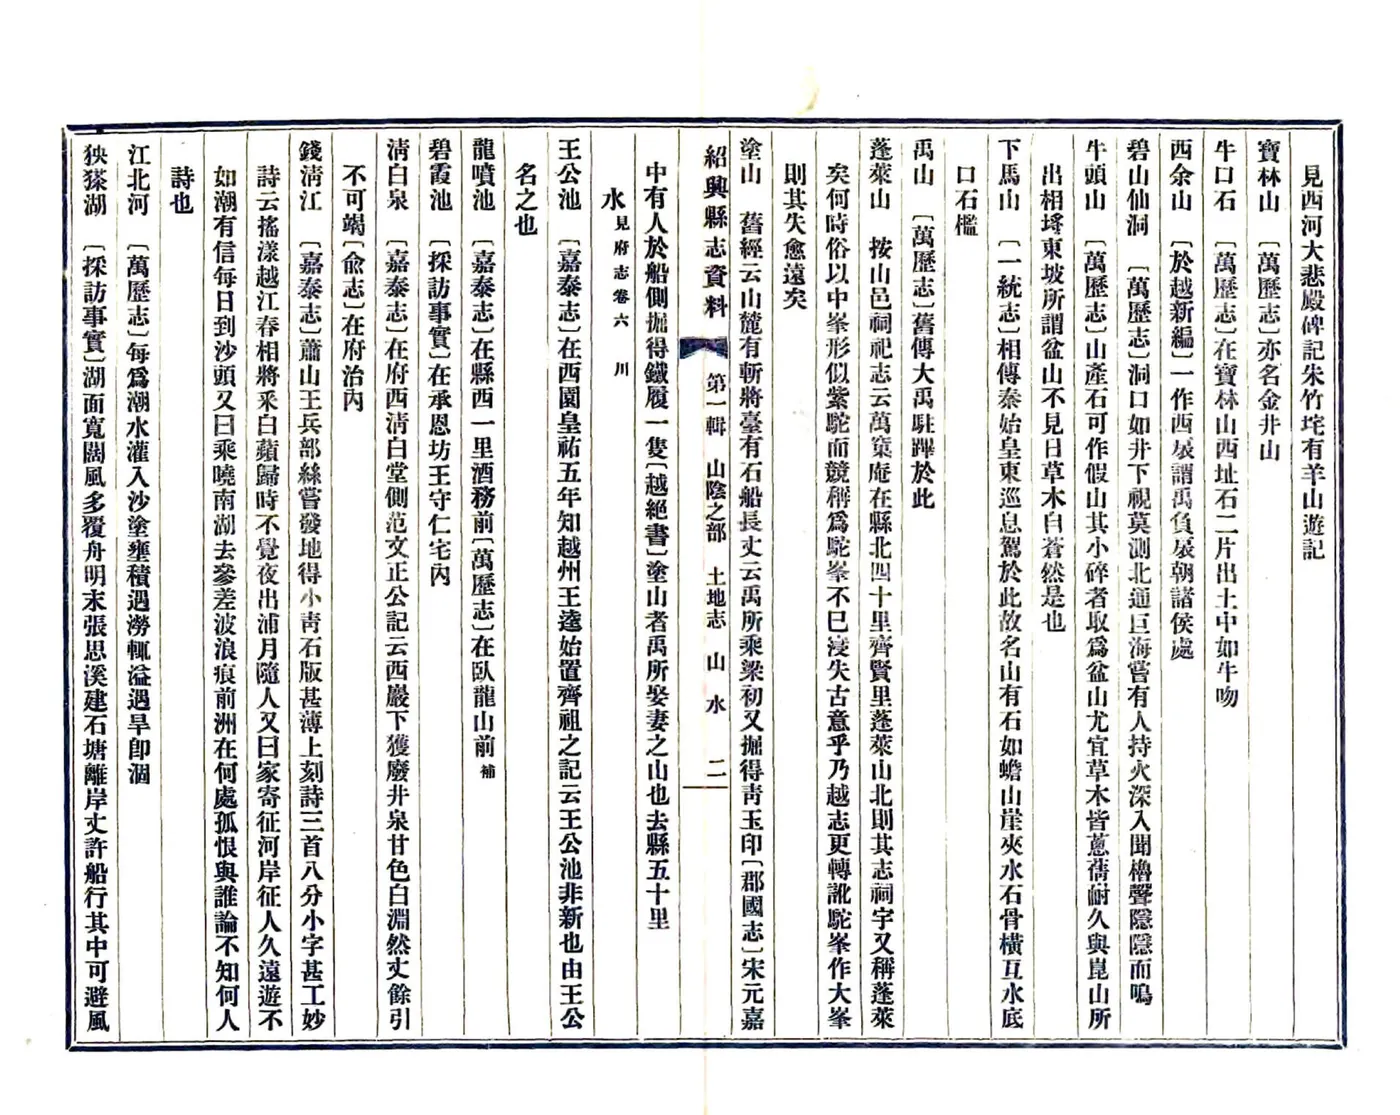 見西河大悲殿碑記朱竹垞有羊山遊記
寶林山　〔萬歷志〕亦名金井山
牛口石　〔萬歷志〕在寶林山西址石二片出土中如牛吻
西余山　〔於越新編〕一作西扆謂禹負扆朝諸侯處
碧山仙洞　〔萬歷志〕洞口如井下視莫測北通巨海嘗有人持火深入聞櫓聲隱隱而鳴
牛頭山　〔萬歷志〕山產石可作假山其小碎者取爲盆山尤宜草木皆蔥蒨耐久與崑山所
出相埒東坡所謂盆山不見日草木自蒼然是也
下馬山　〔一統志〕相傳秦始皇東巡息駕於此故名山有石如蟾山崖夾水石骨橫亙水底
口石檻
禹山　〔萬歷志〕舊傳大禹駐蹕於此
蓬萊山　按山邑祠祀志云萬窠庵在縣北四十里齊賢里蓬萊山北則其志祠宇又稱蓬萊
矣何時俗以中峯形似紫駝而競稱爲駝峯不已寖失古意乎乃越志更轉訛駝峯作大峯
則其失愈遠矣
塗山　舊經云山麓有斬將臺有石船長丈云禹所乘梁初又掘得靑玉印〔郡國志〕宋元嘉
紹興縣志資料　第一輯　山陰之部　土地志　山水　二
中有人於船側掘得鐵履一隻〔越絕書〕塗山者禹所娶妻之山也去縣五十里
水見府志卷六　川
王公池　〔嘉泰志〕在西園皇祐五年知越州王逵始置齊祖之記云王公池非新也由王公
名之也
龍噴池　〔嘉泰志〕在縣西一里酒務前〔萬歷志〕在臥龍山前補
碧霞池　〔採訪事實〕在承恩坊王守仁宅內
淸白泉　〔嘉泰志〕在府西淸白堂側范文正公記云西巖下獲廢井泉甘色白淵然丈餘引
不可竭〔兪志〕在府治內
錢淸江　〔嘉泰志〕蕭山王兵部絲嘗發地得小靑石版甚薄上刻詩三首八分小字甚工妙
詩云搖漾越江春相將采白蘋歸時不覺夜出浦月隨人又曰家寄征河岸征人久遠遊不
如潮有信每日到沙頭又曰乘曉南湖去參差波浪痕前洲在何處孤恨與誰論不知何人
詩也
江北河　〔萬歷志〕每爲潮水灌入沙塗壅積遇澇輒溢遇旱卽涸
狹𣸣湖　〔採訪事實〕湖面寬闊風多覆舟明末張思溪建石塘離岸丈許船行其中可避風